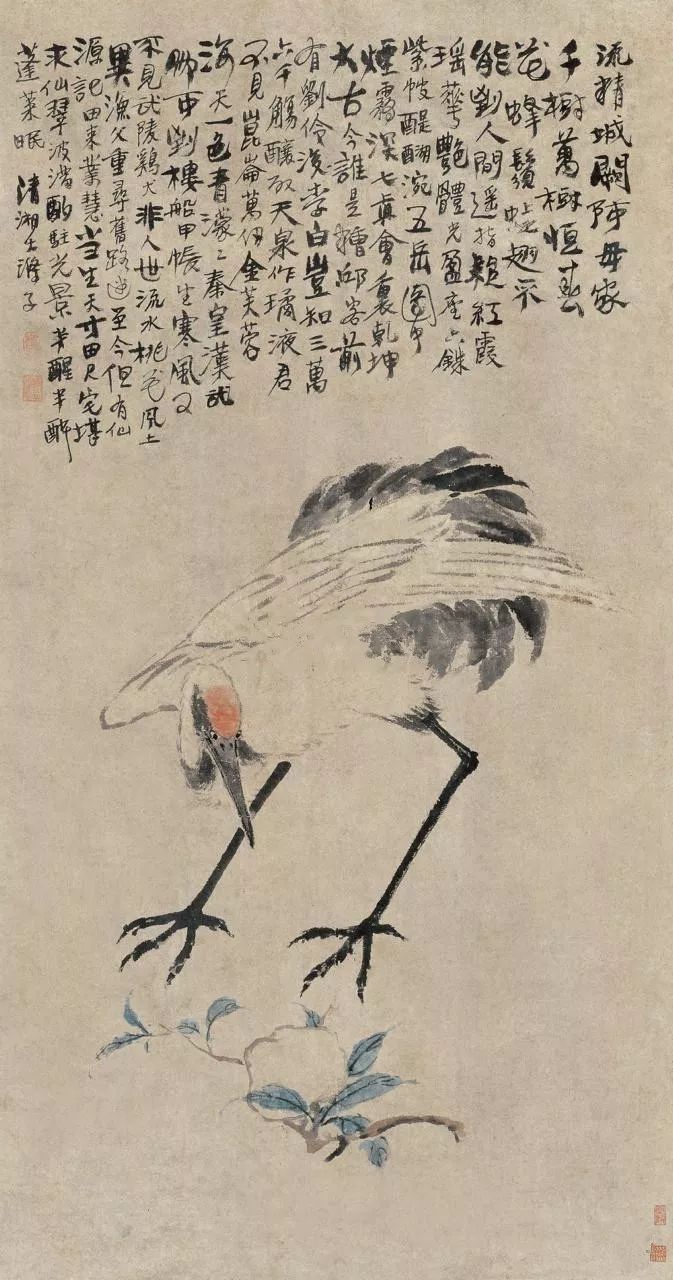 流精城闕阿母家
千樹萬樹恒春
花蜂鬚蝶翅不
能到人間遥指赬紅霞
瑶華艷體光盈座六銖
紫帔醍醐涴五岳圖中
煙霧深七真會裏乾坤
大古今誰是糟邱客前
有劉伶後李白豈知三萬
六千觴釀取天泉作璚液君
不見崑崙萬仞金芙蓉
海天一色青濛々秦皇漢武
那可到樓船甲帳生寒風又
不見武陵鷄犬非人世流水桃花風土
異漁父重尋舊路迷至今但有仙
源記由來業慧當生天寸田尺宅堪
求仙翠波渚酌駐光景半醒半醉
蓬萊眠 清湘大滌子